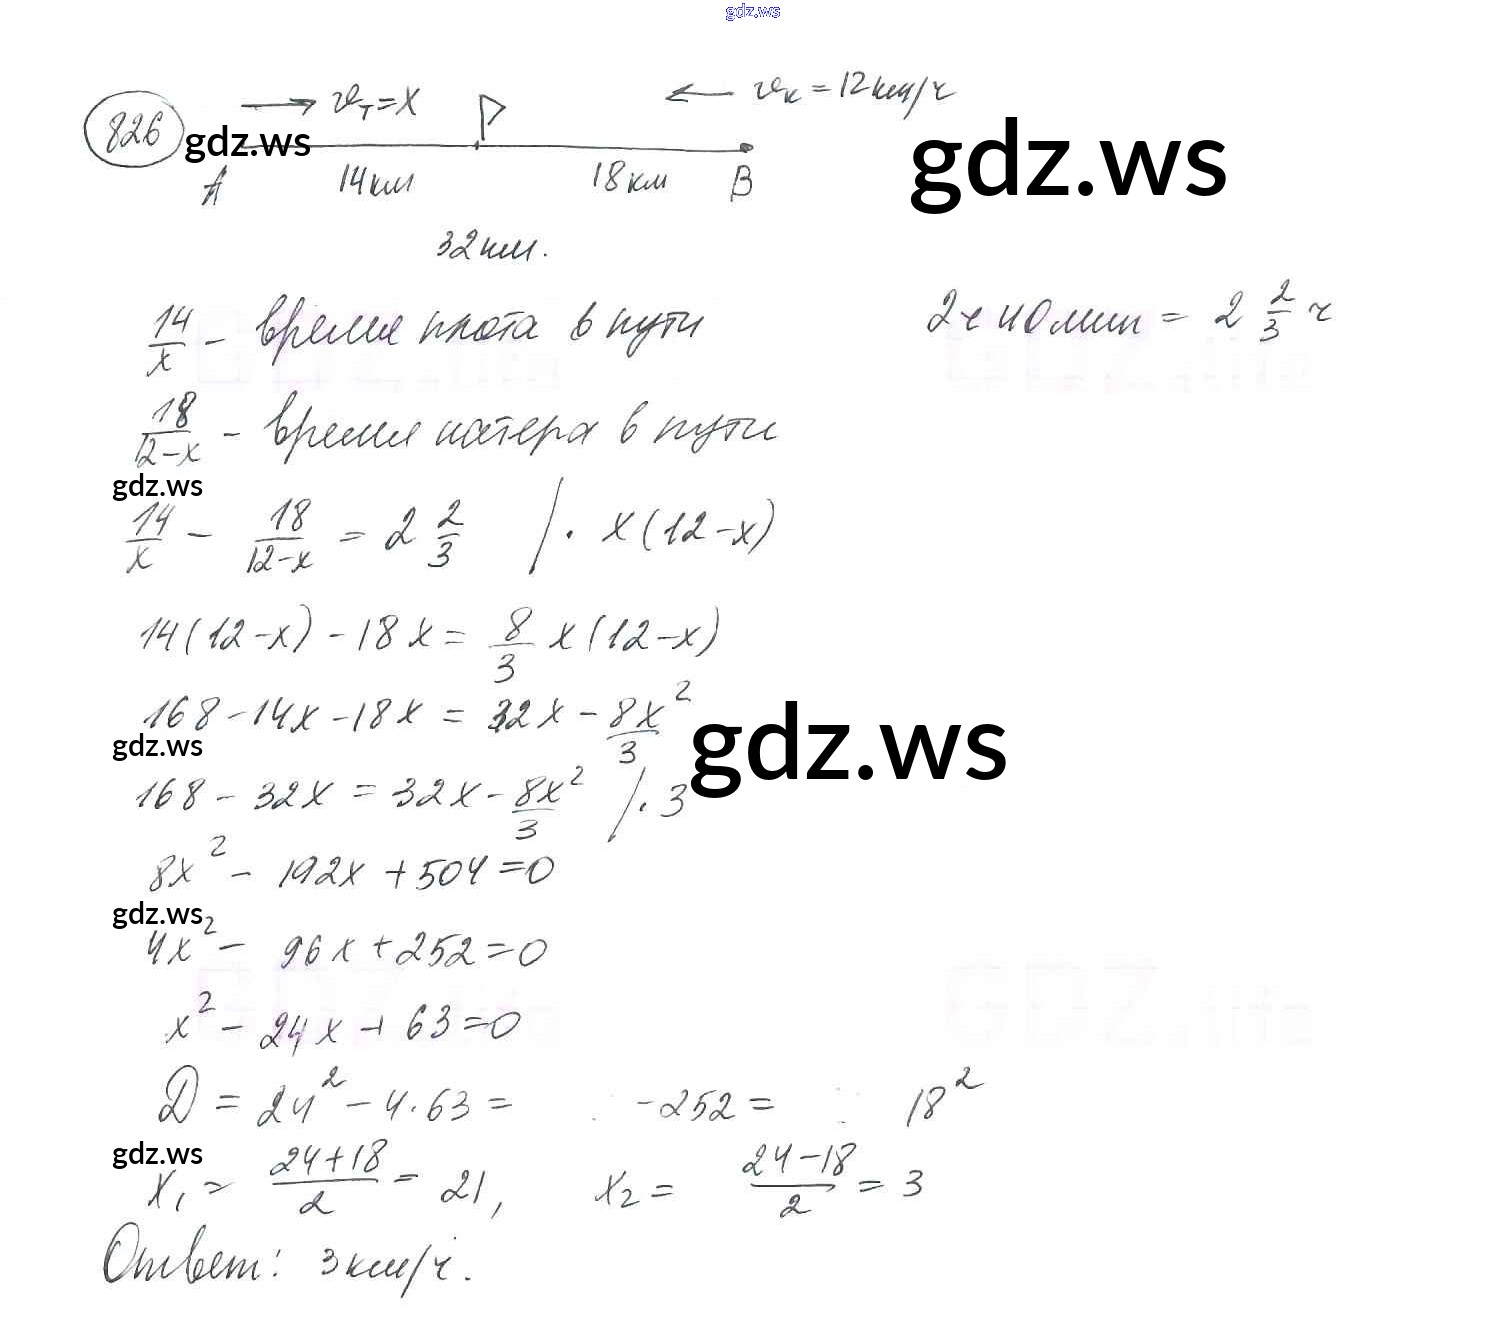 gdz.ws
826 → v_T = x   ← v_K = 12 км/ч
gdz.ws gdz.ws
A 14 км 18 км B
32 км.
14/x - время плота в пути   2ч 40 мин = 2 2/3 ч
18/(12-x) - время катера в пути
gdz.ws
14/x - 18/(12-x) = 2 2/3 / · x(12-x)
14(12-x) - 18x = 8/3 x(12-x)
168 - 14x - 18x = 32x - 8x²/3
gdz.ws gdz.ws
168 - 32x = 32x - 8x²/3 / · 3
8x² - 192x + 504 = 0
gdz.ws
4x² - 96x + 252 = 0
x² - 24x + 63 = 0
D = 24² - 4·63 = -252 = 18²
gdz.ws
x₁ = (24+18)/2 = 21, x₂ = (24-18)/2 = 3
Ответ: 3 км/ч.